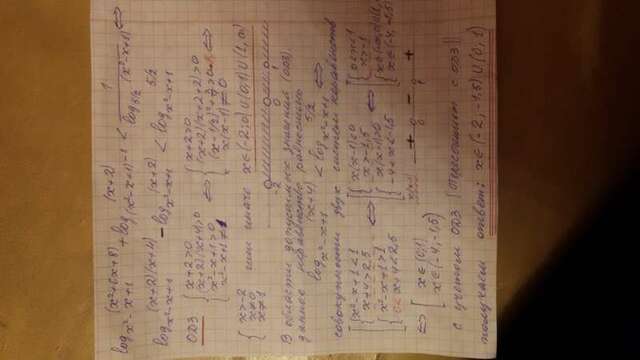 log_{x²-x+1} (x²+6x+8) + log_{(x²-x+1)^{-1}} (x+2) < 1 / log_{5/2} (x²-x+1) ⇔
log_{x²-x+1} (x+2)(x+4) - log_{x²-x+1} (x+2) < log_{x²-x+1} 5/2
ОДЗ { x+2>0 ; (x+2)(x+4)>0 ; x²-x+1>0 ; x²-x+1≠1 ⇔ { x+2>0 ; (x+2)(x+2+2)>0 ; (x-1/2)²+3/4>0 ; x(x-1)≠0 ⇔
{ x>-2 ; x≠0 ; x≠1 или иначе x∈(-2;0)∪(0,1)∪(1,∞)
-2 0 1
В области допустимых значений (ОДЗ)
данное неравенство равносильно
log_{x²-x+1} (x+4) < log_{x²-x+1} 5/2 ⇔
совокупности двух систем неравенств
[ { x²-x+1<1 ; x+4>2,5 ; { x²-x+1>1 ; 0< x+4<2,5 ⇔ [ { x(x-1)<0 ; x>-1,5 ; { x(x-1)>0 ; -4<x<-1,5 ⇔ [ { 0<x<1
x∈(-4,-1,5)
x(x-1) + - +
0 1
⇔ [ x∈(0,1) ; x∈(-4,-1,5)
с учетом ОДЗ с ОДЗ
получаем ответ: x∈(-2,-1,5)∪(0,1)